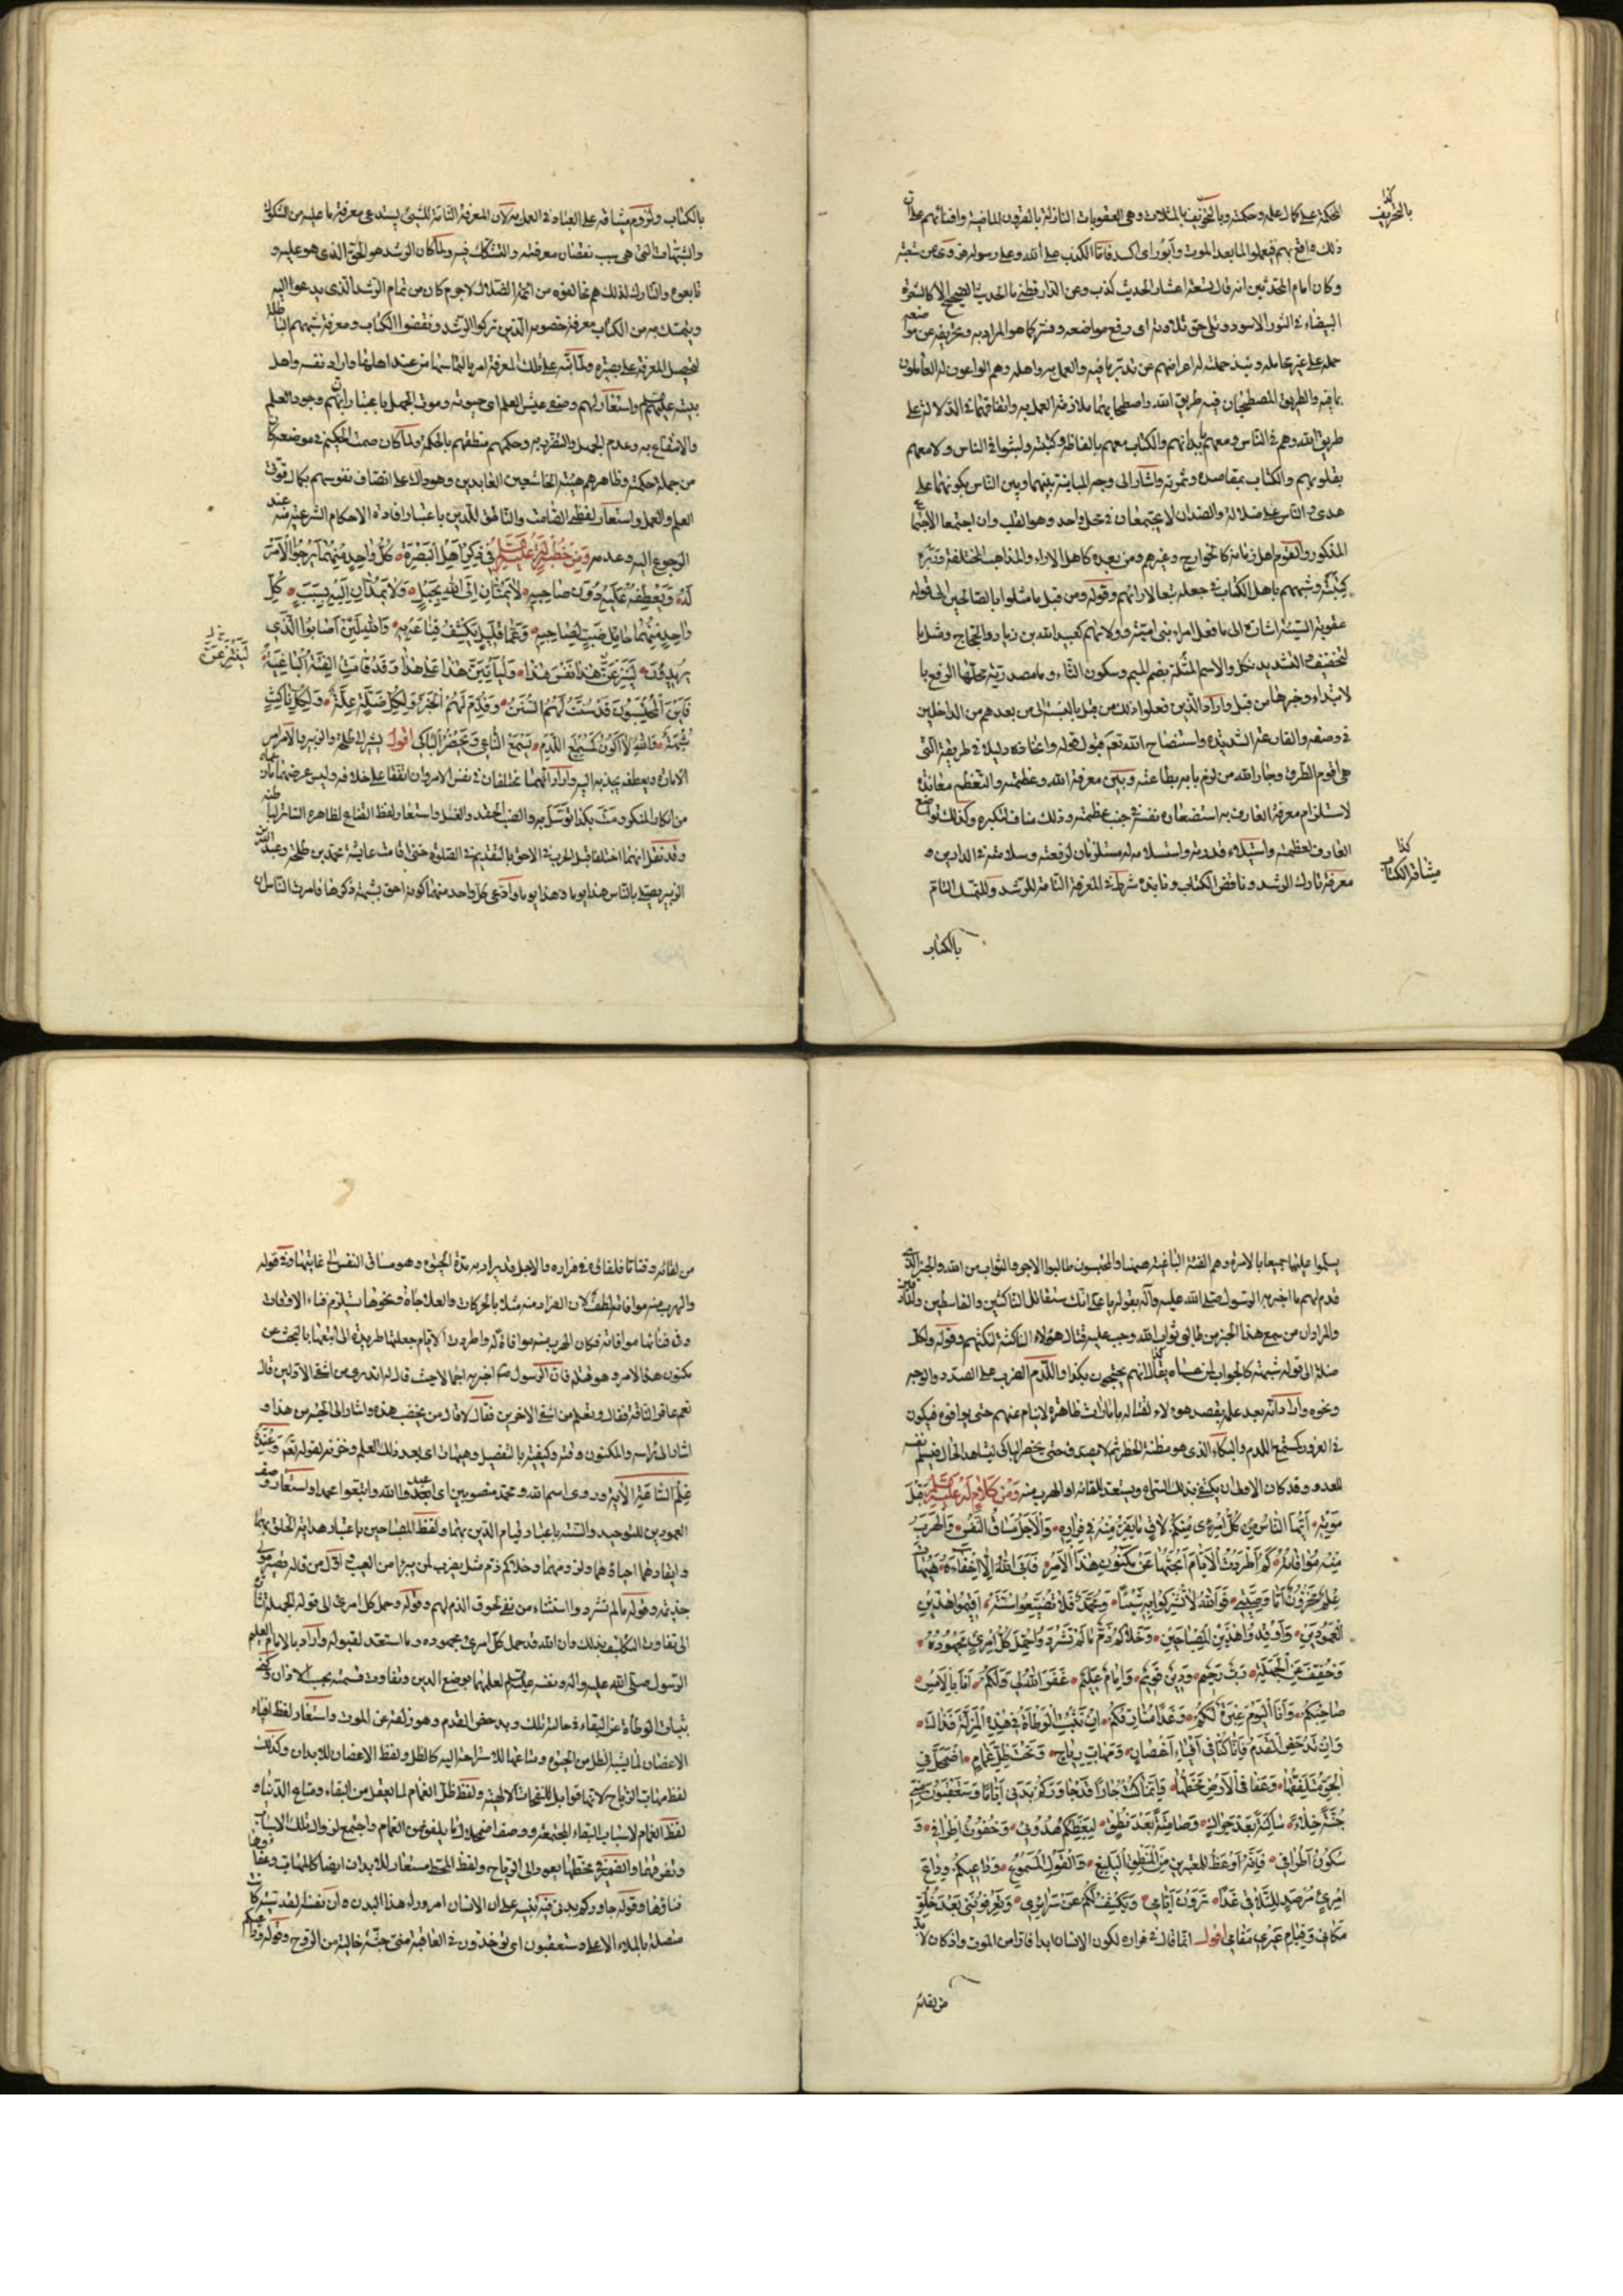 بالتخويف
الحكمة على كمال علمه وحكمته وبالتخويف بالمثلات وهي العقوبات النازلة بالقرون الماضية وافنائهم على ان
ذلك واقع بهم فيعملوا لما بعد الموت وأبور اى اكسد فاما الكذب على الله وعلى رسوله فروى عن شعبة
وكان امام المحدثين انه قال تسعة اعشار الحديث كذب وعن الدارقطني ما الحديث الصحيح الا كالشعرة
البيضاء في الثور الاسود وتلى حق تلاوته اى رفع مواضعه وفسر كما هو المراد به وتحريفه عن مواضعه
حمله على غير محامله ونبذ حملته له اعراضهم عن تدبر ما فيه والعمل به واهله وهم الواعون له العاملون
بما فيه والطريق المصطحبان فيه طريق الله واصطحابهما ملازمة العمل به واتفاقهما في الدلالة على
طريق الله وهم في الناس ومعهم بابدانهم والكتاب معهم بالفاظه وكتبته وليسوا في الناس ولا معهم
بقلوبهم والكتاب بمقاصده وثمرته واشار الى وجه المباينة بينهما وبين الناس بكونهما على
هدى والناس على ضلالة والضدان لا يجتمعان في محل واحد وهو القلب وان اجتمعا الاجتماع
المذكور والقوم اهل زمانه كالخوارج وغيرهم ومن بعده كاهل الاراء والمذاهب المختلفة وزبره
كتبه وشبههم باهل الكتاب في جعله تبعا لارائهم وقوله ومن قبل ما مثلوا بالصالحين الى قوله
عقوبة السيئة اشارة الى ما فعل امراء بنى امية وولاتهم كعبيد الله بن زياد والحجاج ومثل با
لتخفيف والتشديد نكل والاسم المثلة بضم الميم وسكون الثاء وما مصدرية محلها الرفع با
لابتداء وخبرها من قبل واراد الذين فعلوا ذلك من قبل بالنسبة الى من بعدهم من الداخلين
في وصفه والقارعة الشديدة واستنصاح الله تعم قبول قوله واتخاذه دليلا في طريقه التى
هى اقوم الطرق وجار الله من لزم بابه بطاعته وبين معرفة الله وعظمته والتعظم معاندة
لاستلزام معرفة العارف به استصغاره نفسه في جنب عظمته وذلك مناف لتكبره وكذلك تواضع
العارف لعظمته واستيلاء قدرته واستسلامه له مستلزمان لرفعته وسلامته في الدارين و
معرفة تارك الرشد وناقض الكتاب ونابذه شرط في المعرفة التامة للرشد وللتمسك التام
كذا
ميثاق الكتاب
بالكتاب
بالكتاب ولزوم ميثاقه على العباد في العمل به لان المعرفة التامة للشىء يستدعى معرفة ما عليه من الشكوك
والشبهات التى هى سبب نقصان معرفته والتشكك فيه ولما كان الرشد هو الحق الذى هو عليه و
تابعوه والتارك لذلك هم مخالفوه من ائمة الضلال لا جرم كان من تمام الرشد الذى يدعوا اليه
ويتمسك به من الكتاب معرفة خصومه الذين تركوا الرشد ونقضوا الكتاب ومعرفة شبههم الباطلة
لتحصل المعرفة على بصيرة ولما نبه على تلك المعرفة امر بالتماسها من عند اهلها واراد نفسه واهل
بيته عليهم السلم واستعار لهم وصفى عيش العلم اى حيوته وموت الجهل باعتبار ان بهم وجود العلم
والانتفاع به وعدم الجهل والتضرر به وحكمهم منطقهم بالحكمة ولما كان صمت الحكيم في موضعه كان
من جملة حكمته وظاهرهم هيئة الخاشعين العابدين وهو دال على اتصاف نفوسهم بكمال قوتى
العلم والعمل واستعار لفظى الصامت والناطق للدين باعتبار افادته الاحكام الشرعية منه عند
الرجوع اليه وعدمه ومن خطبة له عليه السلم في ذكر اهل البصرة كل واحد منهما يرجو الامر
له ويعطفه عليه دون صاحبه لا يمتان الى الله بحبل ولا يمدان اليه بسبب كل
واحد منهما حامل ضب لصاحبه وعما قليل يكشف قناعه به والله لئن اصابوا الذى
يريدون لينتزعن هذا نفس هذا وليأتين هذا على هذا قد قامت الفئة الباغية
فاين المحتسبون قد سنت لهم السنن وقدم لهم الخبر ولكل ضلة علة ولكل ناكث
شبهة والله لا اكون كمستمع اللدم يسمع الناعى ويحضر الباكى اقول يشير الى طلحة والزبير بالامر امر
الامارة ويعطفه يجذبه اليه واراد انهما مختلفان في نفس الامر وان اتفقا على خلافه وليس غرضهما
من انكار المنكر ومت بكذا توسل به والضب الحقد والغل واستعار لفظ القناع لظاهره الساتر لباطنه
وقد نقل انهما اختلفا قبل الحرب في الاحق بالتقديم في الصلوة حتى اقامت عايشة محمد بن طلحة وعبد الله بن
الزبير يصلى بالناس هذا يوما وهذا يوما وادعى كل واحد منهما كونه احق بشبهة ذكرها فامرت الناس ان
يسلموا عليهما جميعا بالامرة وهم الفئة الباغية هيهنا والمحتسبون طالبوا الاجر والثواب من الله والخبر الذى
قدم لهم ما اخبر به الرسول صلى الله عليه وآله بقوله يا على انك ستقاتل الناكثين والقاسطين والمارقين
والمراد ان من سمع هذا الخبر من طالبى ثواب الله وجب عليه قتال هؤلاء الناكثة لنكثهم وقوله ولكل
ضلة الى قوله شبهة كالجواب لمن عساه يقول انهم يحتجون بكذا واللدم الضرب على الصدر والوجه
ونحوه واراد انه بعد علمه بقصد هؤلاء لقتاله بامارات ظاهرة لا ينام عنهم حتى يوافوه فيكون
في الغرور كمستمع اللدم والبكاء الذى هو مظنة الخطر ثم لا يصدق حتى يحضر الباكى ليشاهد الحال فيسلم نفسه
للعدو وقد كان الاولى ان يكتفى بذلك السماع ويستعد للقائه او الهرب منه ومن كلام له عليه السلم قبل
موته ايها الناس كل امرئ لاق ما يفر منه في فراره والاجل مساق النفس والهرب
منه موافاته كم اطردت الايام ابحثها عن مكنون هذا الامر فابى الله الا اخفاءه هيهات
علم مخزون اما وصيتى فالله لا تشركوا به شيئا ومحمد فلا تضيعوا سنته اقيموا هذين
العمودين واوقدوا هذين المصباحين وخلاكم ذم ما لم تشردوا حمل كل امرئ مجهوده
وخفف عن الجهلة رب رحيم ودين قويم وامام عليم غفر الله لى ولكم انا بالامس
صاحبكم وانا اليوم عبرة لكم وغدا مفارقكم ان تثبت الوطأة في هذه المزلة فذاك
وان تدحض القدم فانا كنا في افياء اغصان ومهاب رياح وتحت ظل غمام اضمحل في
الجو متلفقها وعفا في الارض مخطها وانما كنت جارا قد جاوركم بدنى اياما وستعقبون منى
جثة خلاء ساكنة بعد حراك وصامتة بعد نطق ليعظكم هدوى وخفوت اطرافى و
سكون اطرافى فانه اوعظ للمعتبرين من المنطق البليغ والقول المسموع وداعيكم وداع
امرئ مرصد للتلاقى غدا ترون ايامى ويكشف لكم عن سرائرى وتعرفوننى بعد خلو
مكانى وقيام غيرى مقامى اقول انما قال في فراره لكون الانسان ابدا فارا من الموت واذ كان لا بد
من لقائه
من لقائه وقتا ما فلقاؤه في فراره والاجل قد يراد به مدة الحيوة وهو مساق النفس الى غايتها وفي قوله
والهرب منه موافاته لطف لان الفرار منه مثلا بالحركات والعلاجات ونحوها يستلزم فناء الاوقات
وفى فنائها موافاته فكان الهرب منه موافاة له واطردت الايام جعلتها طريدة لى اتبعها بالبحث عن
مكنون هذا الامر وهو قتله فان الرسول صم اخبره به اجمالا حيث قال له اتدرى من اشقى الاولين قال
نعم عاقر الناقة فقال وتعلم من اشقى الاخرين فقال لا قال من يخضب هذه واشار الى لحيته من هذا و
اشار الى راسه والمكنون وقته وكيفيته بالتفصيل وهيهات اى بعد ذلك العلم وخزنه لقوله تعم وعنده
علم الساعة الآية وروى اسم الله ومحمد منصوبين اى اعبدوا الله واتبعوا محمدا واستعار وصف
العمودين للتوحيد والسنة باعتبار قيام الدين بهما ولفظ المصباحين باعتبار هداية الخلق بهما
وايقادهما احياؤهما ولزومهما وخلاكم ذم مثل يضرب لمن يبرا من العيب اول من قاله قصير مولى
جذيمة وقوله ما لم تشردوا استثناء من نفى لحوق الذم لهم وقوله وحمل كل امرئ الى قوله الجهلة اشارة
الى تفاوت التكليف بذلك وان الله قد حمل كل امرئ مجهوده وما استعد لقبوله واراد بالامام العليم
الرسول صلى الله عليه واله ونفسه عليه السلم لعلمهما بوضع الدين وتفاوت قسمته بحسب الاذهان وكنى
بثبات الوطأة عن البقاء في حالته تلك وبدحض القدم وهو زلقه عن الموت واستعار لفظ افياء
الاغصان لما يشبه الظل من الحيوة ومتاعها للاستراحة اليه كالظل ولفظ الاغصان للابدان وكذلك
لفظ مهاب الرياح لانها قوابل للنفحات الالهية ولفظ ظل الغمام لما يعقل من البقاء ومتاع الدنيا و
لفظ الغمام لاسباب البقاء المجتمعة ووصف اضمحلال ما تلفق من الغمام واجتمع لزوال تلك الاسباب
وتفرقها والضمير في مخطها يعود الى الرياح ولفظ المخط مستعار للابدان ايضا كالمهاب وعفا
فناؤها وقوله جاوركم بدنى فيه تنبيه على ان الانسان امر وراء هذا البدن وان نفسه القدسية كانت
متصلة بالملاء الاعلى وستعقبون اى توخذون في العاقبة منى جثة خالية من الروح وقوله وداعيكم